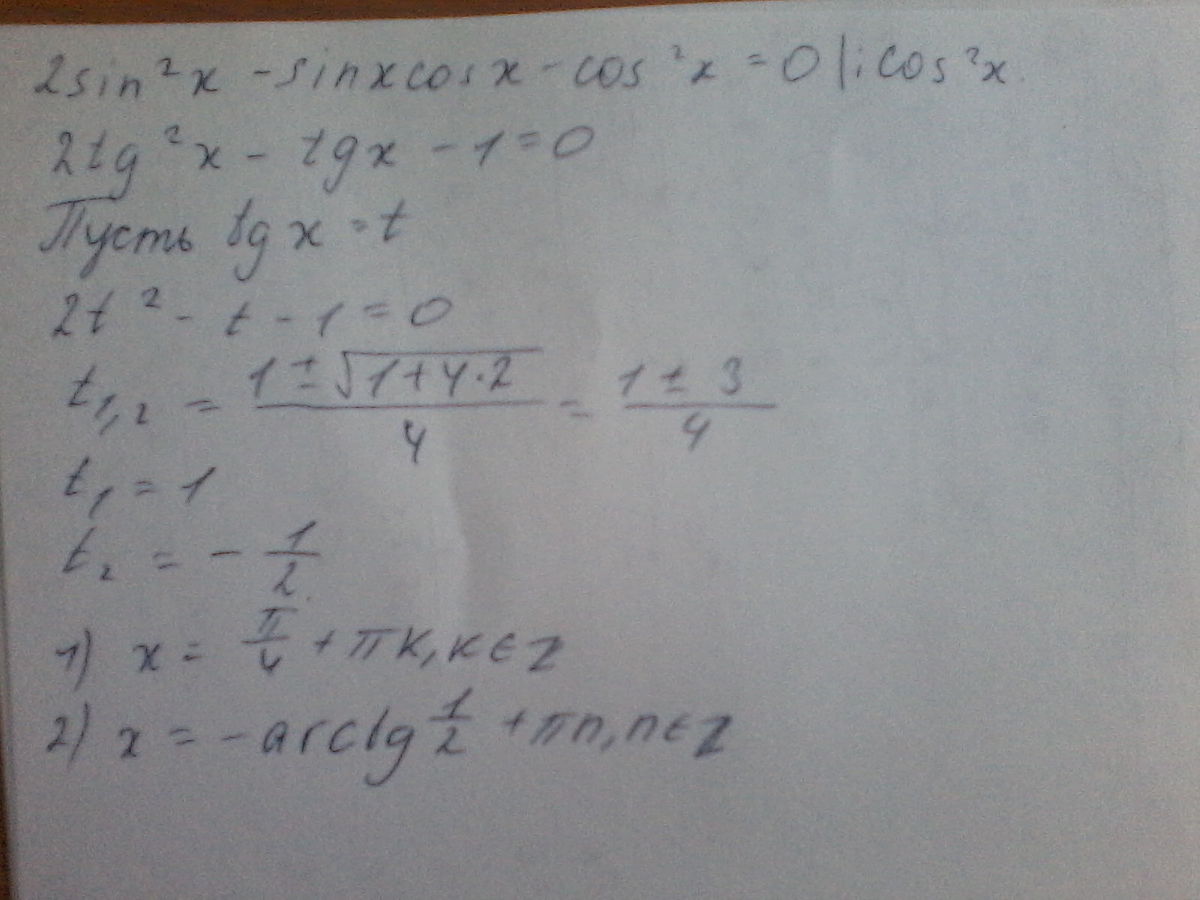 2sin²x - sinxcosx - cos²x = 0 |: cos²x
2tg²x - tgx - 1 = 0
Пусть tgx = t
2t² - t - 1 = 0
t₁,₂ = (1 ± √(1+4·2))/4 = (1 ± 3)/4
t₁ = 1
t₂ = - 1/2
1) x = π/4 + πk, k ∈ Z
2) x = -arctg 1/2 + πn, n ∈ Z